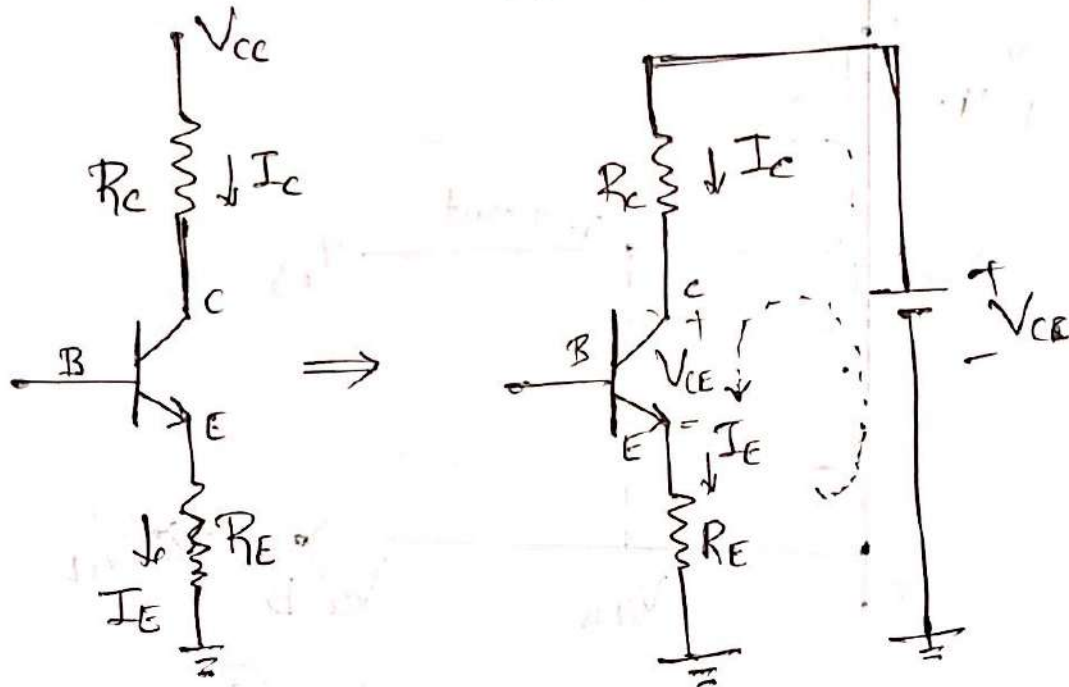 VCC
RC ↓ IC
C
B
E
↓ RE
IE
⇒
RC ↓ IC
C
+
B
VCE
E -
IE
↓
RE
+
VCE
-